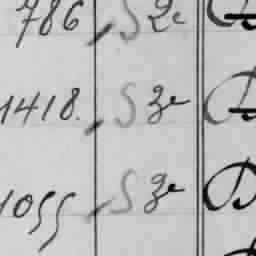 786 S 2e
1418. S 3e
1055 S 3e